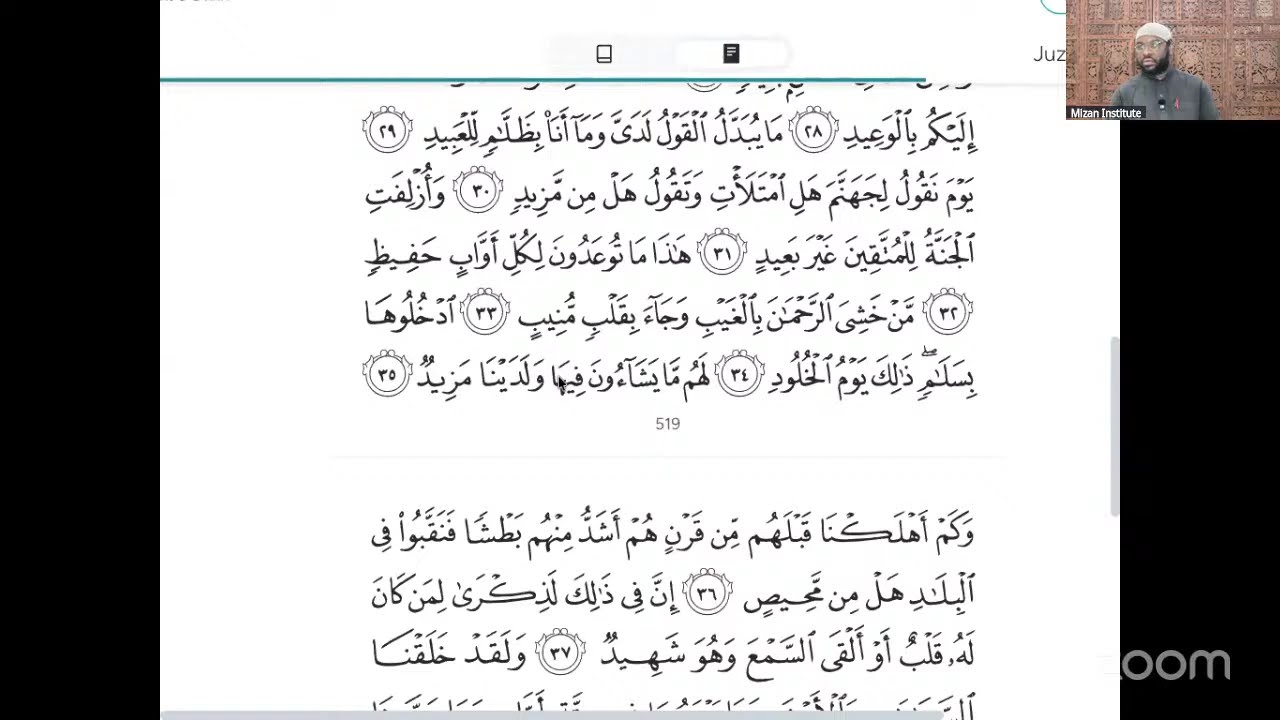 Juz
Mizan Institute
إِلَيْكُم بِٱلْوَعِيدِ ٢٨ مَا يُبَدَّلُ ٱلْقَوْلُ لَدَىَّ وَمَآ أَنَا۠ بِظَلَّـٰمٍ لِّلْعَبِيدِ ٢٩
يَوْمَ نَقُولُ لِجَهَنَّمَ هَلِ ٱمْتَلَأْتِ وَتَقُولُ هَلْ مِن مَّزِيدٍ ٣٠ وَأُزْلِفَتِ
ٱلْجَنَّةُ لِلْمُتَّقِينَ غَيْرَ بَعِيدٍ ٣١ هَـٰذَا مَا تُوعَدُونَ لِكُلِّ أَوَّابٍ حَفِيظٍ
٣٢ مَّنْ خَشِىَ ٱلرَّحْمَـٰنَ بِٱلْغَيْبِ وَجَآءَ بِقَلْبٍ مُّنِيبٍ ٣٣ ٱدْخُلُوهَا
بِسَلَـٰمٍ ۖ ذَٰلِكَ يَوْمُ ٱلْخُلُودِ ٣٤ لَهُم مَّا يَشَآءُونَ فِيهَا وَلَدَيْنَا مَزِيدٌ ٣٥
519
وَكَمْ أَهْلَكْنَا قَبْلَهُم مِّن قَرْنٍ هُمْ أَشَدُّ مِنْهُم بَطْشًا فَنَقَّبُوا۟ فِى
ٱلْبِلَـٰدِ هَلْ مِن مَّحِيصٍ ٣٦ إِنَّ فِى ذَٰلِكَ لَذِكْرَىٰ لِمَن كَانَ
لَهُۥ قَلْبٌ أَوْ أَلْقَى ٱلسَّمْعَ وَهُوَ شَهِيدٌ ٣٧ وَلَقَدْ خَلَقْنَا
zoom